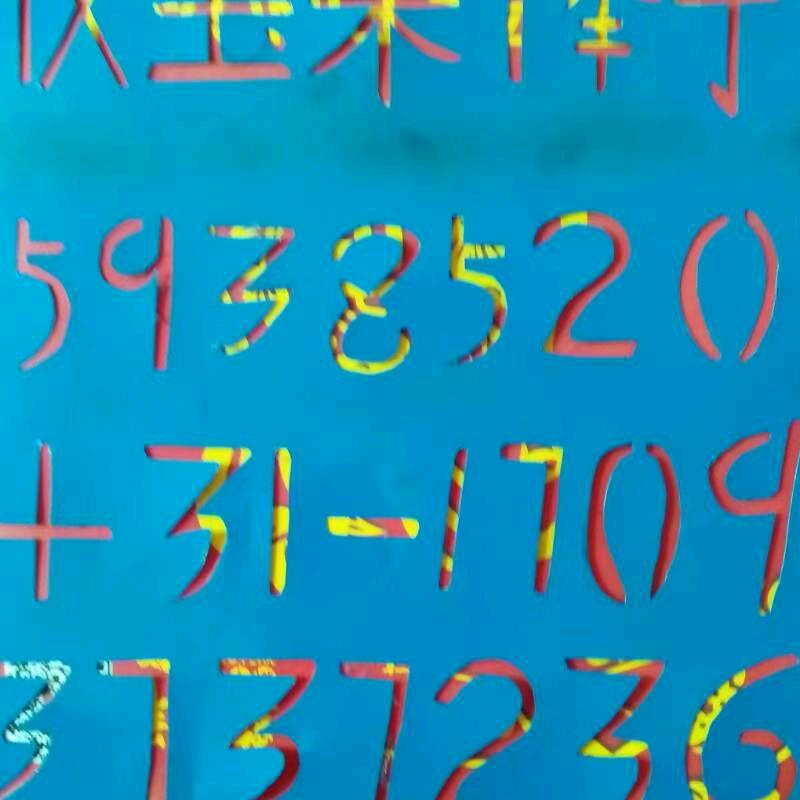 玉米
5938520
+31-1709
3737236